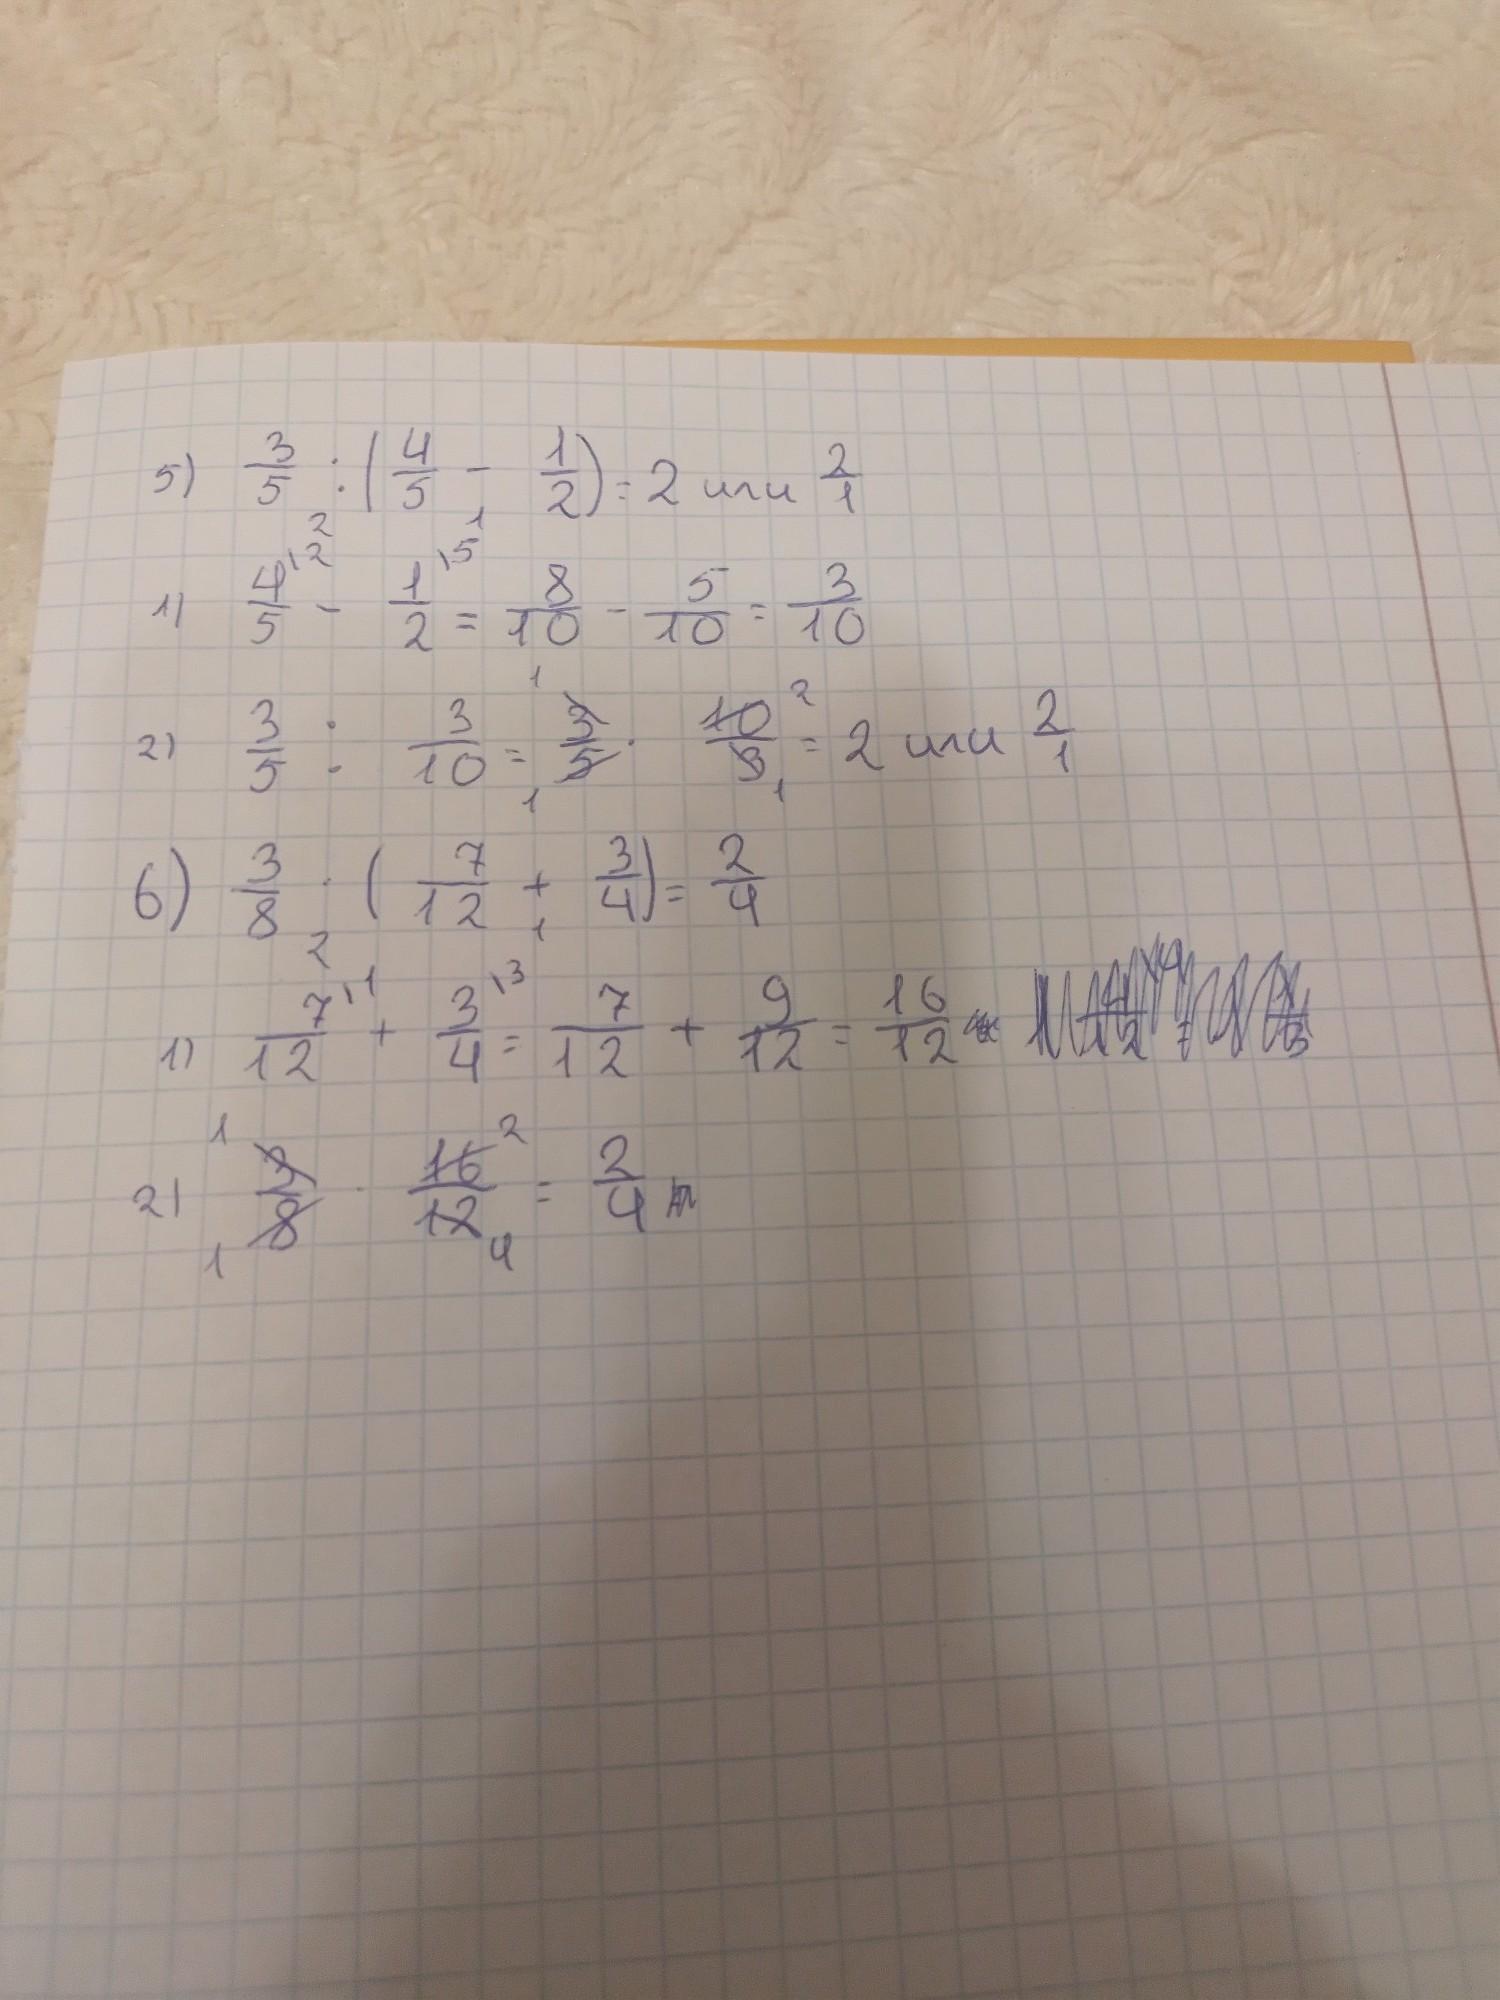 5) 3/5 : (4/5 - 1/2) = 2 или 2/1
1) 4/5 \2 - 1/2 \5 = 8/10 - 5/10 = 3/10
2) 3/5 : 3/10 = 3/5 · 10/3 = 2 или 2/1
6) 3/8 · (7/12 + 3/4) = 2/4
1) 7/12 \1 + 3/4 \3 = 7/12 + 9/12 = 16/12
2) 3/8 · 16/12 = 2/4